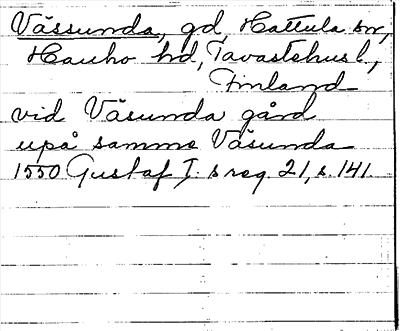 Vässunda, gd, Hattula sn,
Hauho hd, Tavastehus l.,
Finland
vid Väsunda gård
upå samme Väsunda
1550 Gustaf I:s reg. 21, s. 141.